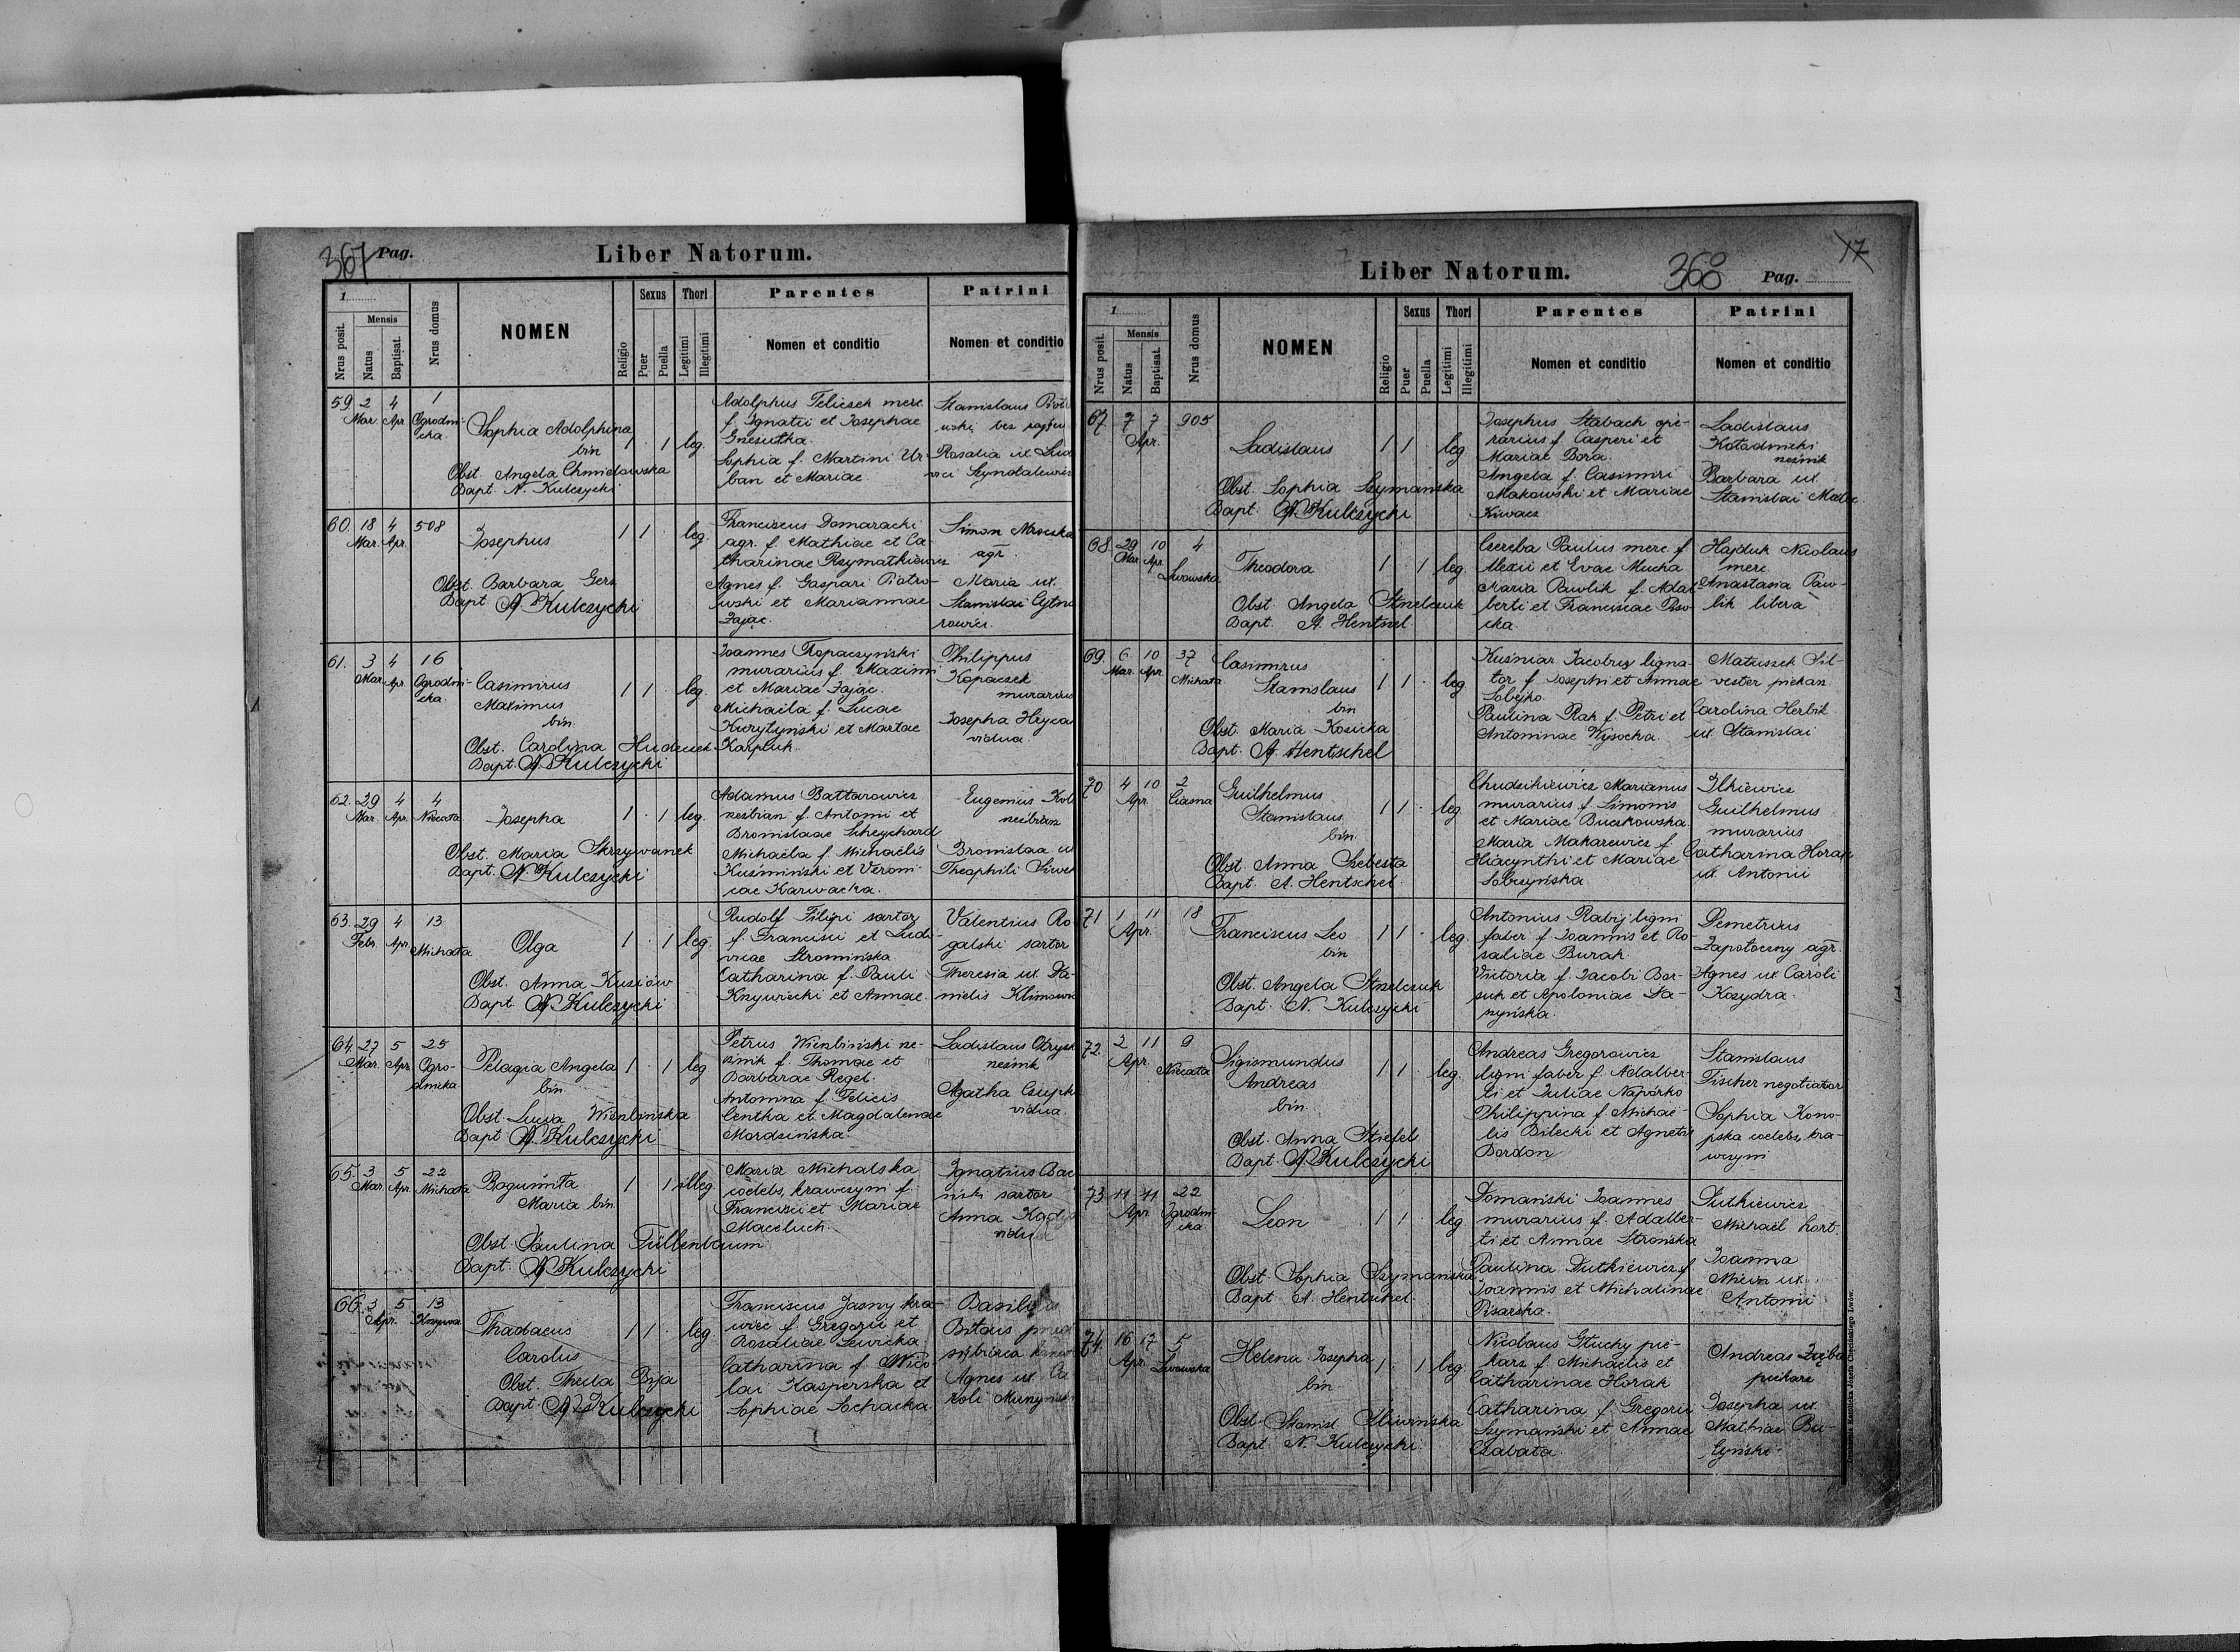 367 Pag.
Liber Natorum.
1
Nrus posit.
Mensis
Natus
Baptisat.
Nrus domus
NOMEN
Religio
Sexus
Puer
Puella
Thori
Legitimi
Illegitimi
Parentes
Nomen et conditio
Patrini
Nomen et conditio
59. 2 4 1
Mar. Apr. Ogrodni-
cka
Sophia Adolphina
bin
1 · 1 leg.
Obst. Angela Chmielowska
Bapt. N. Kulczycki
Adolphus Teliczek merc.
f. Ignatii et Josephae
Gnesutka.
Sophia f. Martini Ur-
ban et Mariae
Stanislaus
Rosalia ux. Lud
60. 18 4 508
Mar. Apr.
Josephus
1 1 · leg.
Obst. Barbara Gers
Bapt. N. Kulczycki
Franciscus Domaracki
agr. f. Mathiae et Ca-
tharinae
Agnes f. Gaspari Piotro-
wski et Mariannae
Zając.
Simon
agr.
Maria ux.
Stanislai
61. 3 4 16
Mar. Apr. Ogrodni-
cka.
Casimirus
Maximus
bin
1 1 · leg.
Obst. Carolina Hudzuch
Bapt. N. Kulczycki
Joannes Kopaczyński
murarius f. Maximi
et Mariae Zając.
Michaëla f. Lucae
Kurytyński et Martae
Karpluk.
Philippus
Kopaczek
murarius
Josepha
vidua
62. 29 4 4
Mar. Apr. Niecała
Josepha
1 · 1 leg.
Obst. Maria Skrzywanek
Bapt. N. Kulczycki
Adamus Battarowicz
f. Antonii et
Bronislaae Scheychard
Michaëla f. Michaëlis
Kuśmiński et Veroni-
cae Karwacka.
Eugenius
Bronislaa
Theophili
63. 29 4 13
Febr. Apr. Michała
Olga
1 · 1 leg.
Obst. Anna Kusiów
Bapt. N. Kulczycki
Rudolf Filipi sartor
f. Francisci et Ludo-
vicae Stromińska
Catharina f. Pauli
Krzywiecki et Annae
Valentius Ro-
galski sartor
Theresia ux. Da-
nielis
64. 27 5 25
Mar. Apr. Ogro-
dnicka
Pelagia Angela
bin.
1 · 1 leg
Obst. Lucia Wierzbińska
Bapt N. Kulczycki
Petrus Wierzbiński
f. Thomae et
Barbarae Regel.
Antonina f. Felicis
Centka et Magdalenae
Mordzińska.
Ladislaus
Agatha
vidua
65. 3 5 22
Mar. Apr. Michała
Bogumiła
Maria bin
1 · 1 illeg.
Obst. Paulina Füllenbaum
Bapt. N. Kulczycki
Maria Michalska
coelebs, krawczyni f.
Francisci et Mariae
Maceluch.
Ignatius
sartor
Anna
66. 3 5 13
Apr.
Thadaeus
Carolus
1 1 · leg.
Obst. Thecla Bija
Bapt. N. Kulczycki
Franciscus Jasny kra-
wiec f. Gregorii et
Rosaliae Lewicka
Catharina f. Nico-
lai Kasperska et
Sophiae Sochacka.
Agnes ux. Ca-
roli
17
Liber Natorum.
368 Pag.
1
Nrus posit.
Mensis
Natus
Baptisat.
Nrus domus
NOMEN
Religio
Sexus
Puer
Puella
Thori
Legitimi
Illegitimi
Parentes
Nomen et conditio
Patrini
Nomen et conditio
67. 7 7 905
Apr.
Ladislaus
1 1 · leg
Obst. Sophia Szymańska
Bapt. N. Kulczycki
Josephus Stabach ope-
rarius f. Casperi et
Mariae Bora.
Angela f. Casimiri
Makowski et Mariae
Kiwacz
Ladislaus
Barbara ux.
Stanislai
68. 29 10 4
Mar. Apr. Lwowska
Theodora
1 · 1 leg.
Obst. Angela Strzelczuk
Bapt. A. Hentschel
Czereba Paulus merc f.
Alexii et Evae Mucha
Maria Pawlik f. Adal-
berti et Franciscae
Hajduk Nicolaus
merc
Anastasia Paw-
lik libera
69. 6 10 37
Mar. Apr. Michała
Casimirus
Stanislaus
bin
1 1 · leg.
Obst. Maria Kosicka
Bapt. A. Hentschel
Kuśniar Jacobus ligna-
tor f. Josephi et Annae
Sobejko.
Paulina Rak f. Petri et
Antoninae Wysocka.
Matuszek Sil-
vester piekarz
Carolina Herbik
ux. Stanislai
70 4 10 2
Apr. Ciasna
Guilhelmus
Stanislaus
bin.
1 1 · leg.
Obst. Anna Szebesta
Bapt. A. Hentschel.
Chudzikiewicz Marianus
murarius f. Simonis
et Mariae Buczkowska
Maria Makarewicz f.
Hiacynthi et Mariae
Sobczyńska
Ilkiewicz
Guilhelmus
murarius
Catharina Horak
ux. Antonii
71 1 11 18
Apr.
Franciscus Leo
bin
1 1 · leg.
Obst. Angela Strzelczuk
Bapt. N. Kulczycki
Antonius Rabij ligni
faber f. Joannis et Ro-
saliae Burak.
Victoria f. Jacobi Bor-
suk et Apoloniae Da-
szyńska.
Demetrius
Zapotoczny agr.
Agnes ux. Caroli
Kozydra.
72. 2 11 9
Apr. Niecała
Sigismundus
Andreas
bin.
1 1 · leg.
Obst. Anna Stiefels
Bapt. N. Kulczycki
Andreas Gregorowicz
ligni faber f. Adalber-
ti et Juliae Napórko
Philippina f. Michaë-
lis Bilecki et Agnetis
Bordon
Stanislaus
Fischer negotiator
Sophia Kono-
pska coelebs, kra-
wczyni
73. 11 11 22
Apr Ogrodni-
cka
Leon
1 1 · leg
Obst. Sophia Szymańska
Bapt. A. Hentschel.
Domański Joannes
murarius f. Adalber-
ti et Annae Strońska
Paulina Dutkiewicz f.
Joannis et Michalinae
Pisarska.
Dutkiewicz
Michaël hort.
Joanna
ux.
Antonii
74. 16 17 5
Apr. Lwowska
Helena Josepha
bin
1 · 1 leg.
Obst. Stanisl. Śliwińska
Bapt N. Kulczycki.
Nicolaus Głuchy pie-
karz f. Michaëlis et
Catharinae Horak
Catharina f. Gregorii
Szymański et Annae
Czabata
Andreas Zięba
piekarz
Josepha ux.
Mathiae Bu-
łyński.